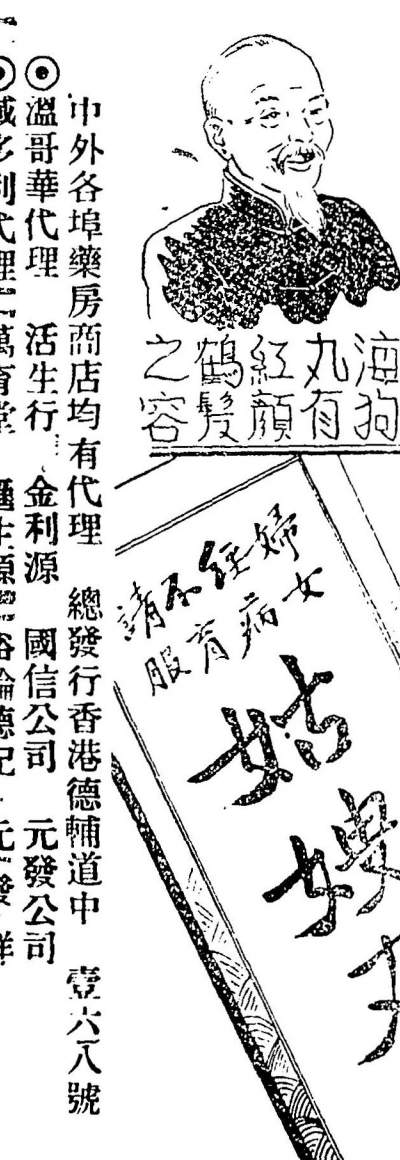 海狗
丸有
紅顏
鶴髮
之容
婦女
經病
不育
請服
姑
中外各埠藥房商店均有代理 總發行香港德輔道中 壹六八號
◎溫哥華代理 活生行 金利源 國信公司 元發公司
域多利代理 萬育堂